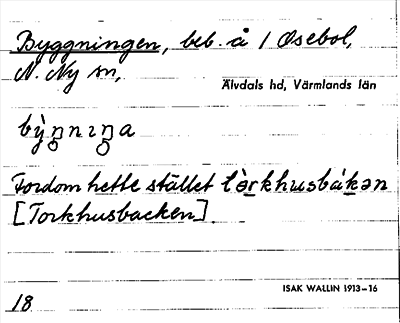 Byggningen, beb. å 1 Osebol,
N. Ny sn,
Älvdals hd, Värmlands län
bỳŋnıŋa
Fordom hette stället lèrkhusbákən
[Torkhusbacken].
ISAK WALLIN 1913–16
18